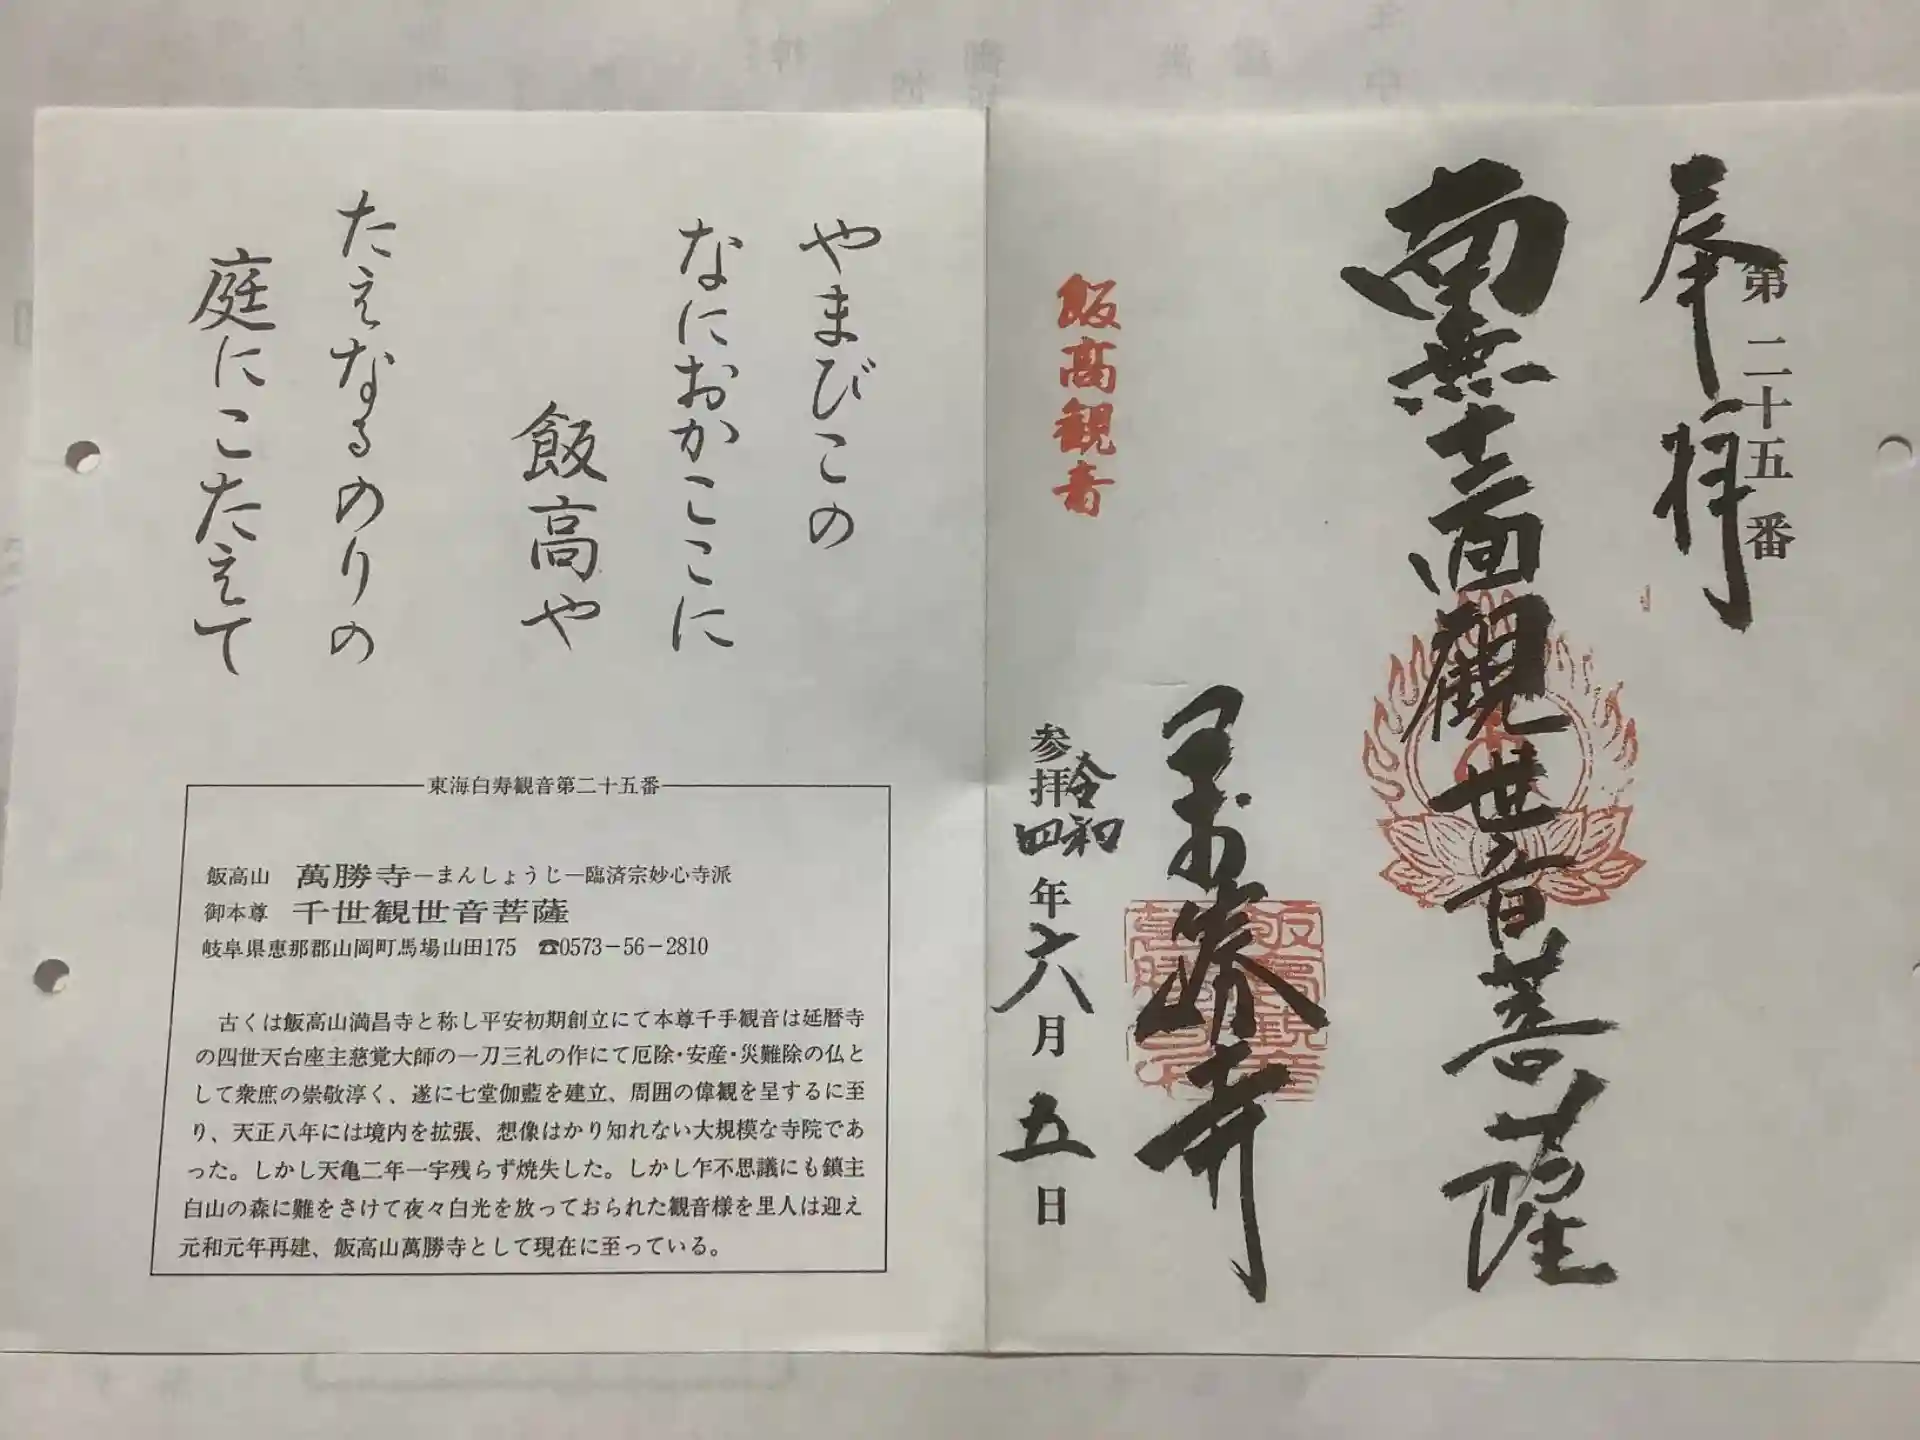 第二十五番
奉拝
南無十一面観世音菩薩
萬勝寺
飯高観音
令和
参拝四年六月五日
やまびこの
なにおかここに
飯高や
たえなるのりの
庭にこたえて
東海白寿観音第二十五番
飯高山 萬勝寺―まんしょうじ―臨済宗妙心寺派
御本尊 千世観世音菩薩
岐阜県恵那郡山岡町馬場山田175 ☎0573−56−2810
古くは飯高山満昌寺と称し平安初期創立にて本尊千手観音は延暦寺
の四世天台座主慈覚大師の一刀三礼の作にて厄除・安産・災難除の仏と
して衆庶の崇敬淳く、遂に七堂伽藍を建立、周囲の偉観を呈するに至
り、天正八年には境内を拡張、想像はかり知れない大規模な寺院であ
った。しかし天亀二年一宇残らず焼失した。しかし乍不思議にも鎮主
白山の森に難をさけて夜々白光を放っておられた観音様を里人は迎え
元和元年再建、飯高山萬勝寺として現在に至っている。